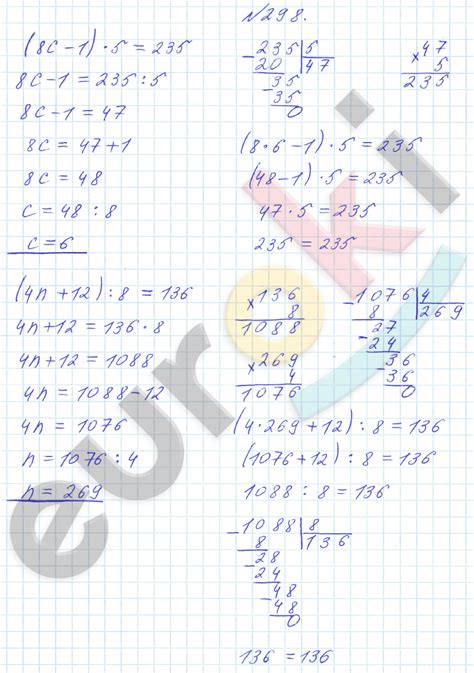 №298.
(8c-1)·5=235
8c-1=235:5
8c-1=47
8c=47+1
8c=48
c=48:8
c=6
-235|5
20|47
-35
35
0
×47
5
235
(8·6-1)·5=235
(48-1)·5=235
47·5=235
235=235
(4n+12):8=136
4n+12=136·8
4n+12=1088
4n=1088-12
4n=1076
n=1076:4
n=269
×136
8
1088
×269
4
1076
-1076|4
8|269
-27
24
-36
36
0
(4·269+12):8=136
(1076+12):8=136
1088:8=136
-1088|8
8|136
-28
24
-48
48
0
136=136
euroki